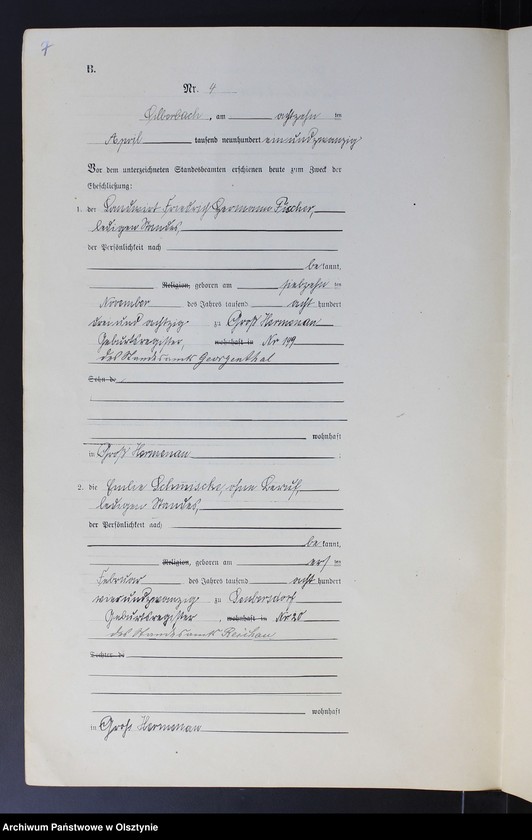 7
B.
Nr. 4
Silberbach, am achtzehn ten
April tausend neunhundert einundzwanzig
Vor dem unterzeichneten Standesbeamten erschienen heute zum Zweck der
Eheschließung:
1. der Landwirt Friedrich Hermann Fischer,
ledigen Standes,
der Persönlichkeit nach
be kannt,
Religion, geboren am siebzehn ten
November des Jahres tausend acht hundert
dreiundachtzig zu Groß Hermenau
Geburtsregister, wohnhaft in Nr 149
des Standesamts Georgenthal
Sohn de
wohnhaft
in Groß Hermenau ;
2. die Emilie ohne Beruf,
ledigen Standes,
der Persönlichkeit nach
be kannt,
Religion, geboren am ten
Februar des Jahres tausend acht hundert
zu
Geburtsregister, wohnhaft in Nr 20
des Standesamts
Tochter de
wohnhaft
in Groß Hermenau
Archiwum Państwowe w Olsztynie